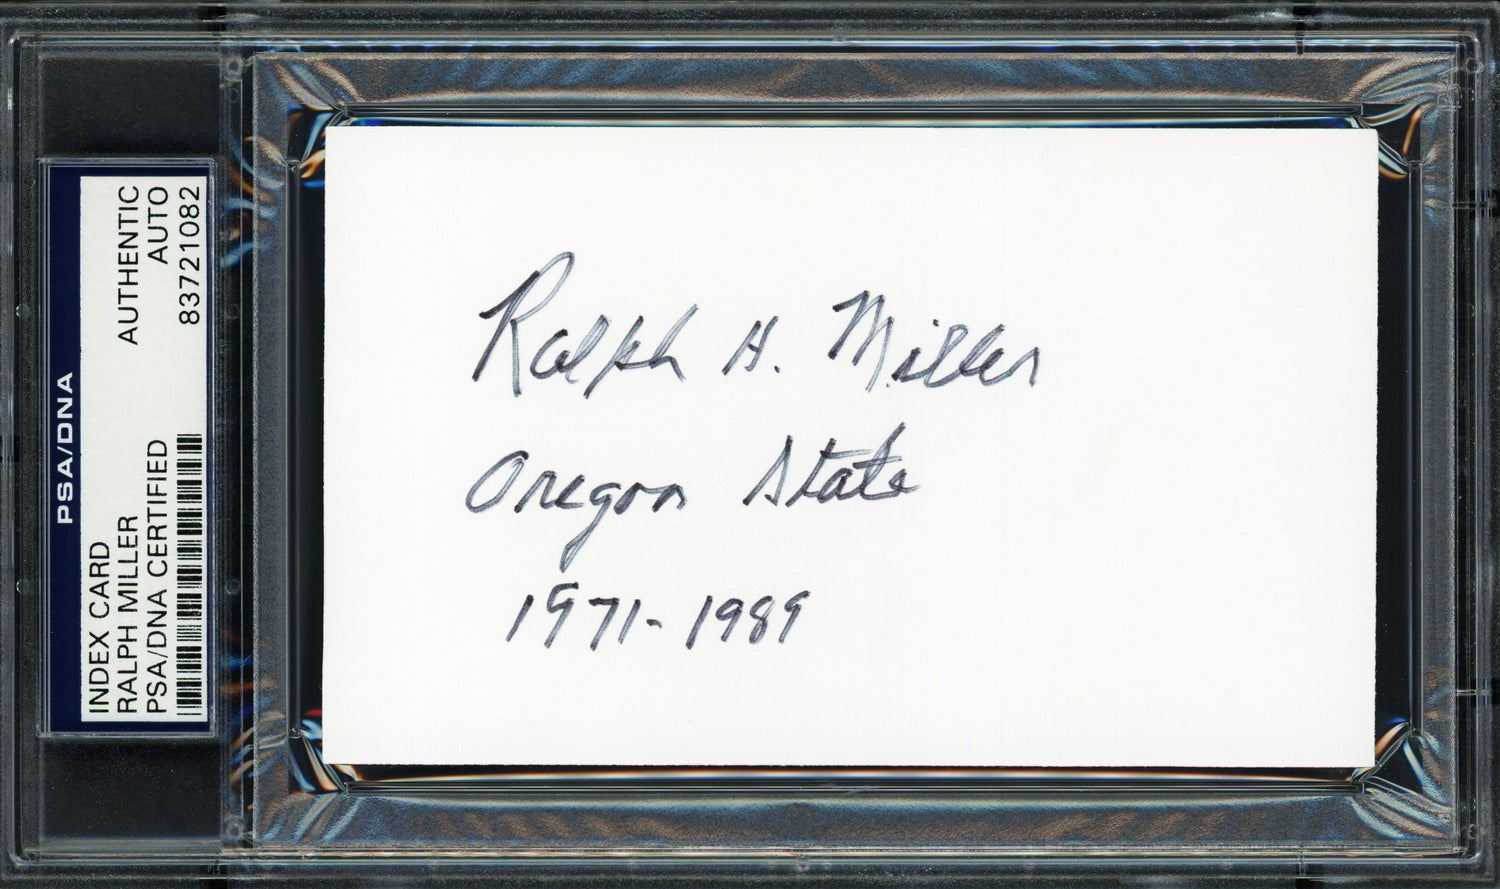 PSA/DNA
INDEX CARD
RALPH MILLER
PSA/DNA CERTIFIED
AUTHENTIC
AUTO
83721082
Ralph H. Miller
Oregon State
1971-1989